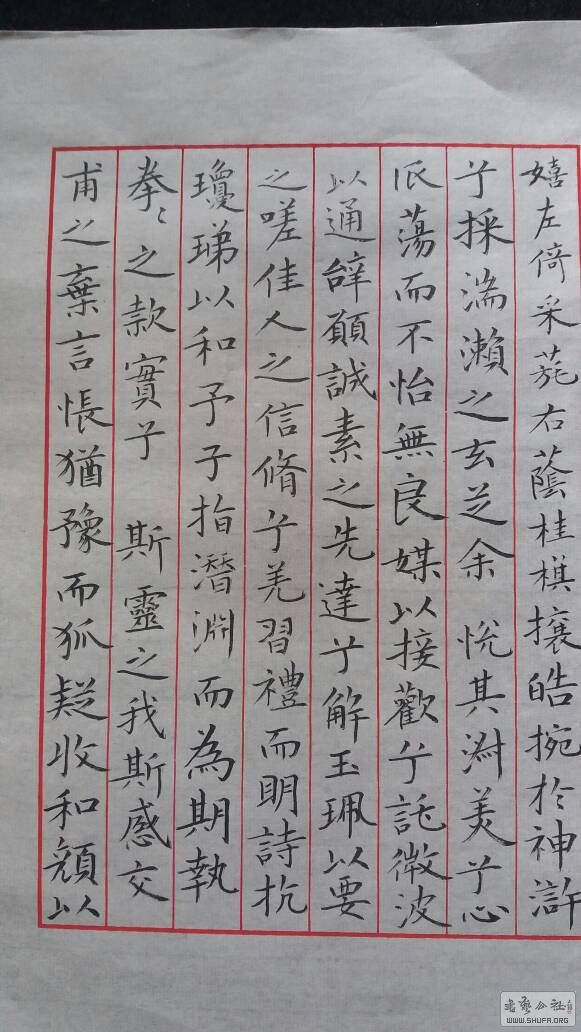 嬉左倚采旄右蔭桂棋攘皓捥於神滸
兮採湍瀨之玄芝余悅其淑美兮心
振蕩而不怡無良媒以接歡兮託微波
以通辭願誠素之先達兮解玉珮以要
之嗟佳人之信脩兮羌習禮而明詩抗
瓊珶以和予子指潛淵而為期執
拳〻之款實子斯靈之我斯感交
甫之棄言悵猶豫而狐疑收和顏以
书艺公社
WWW.SHUFA.ORG